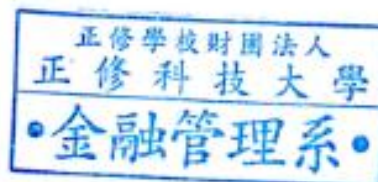 正修學校財團法人
正修科技大學
•金融管理系•